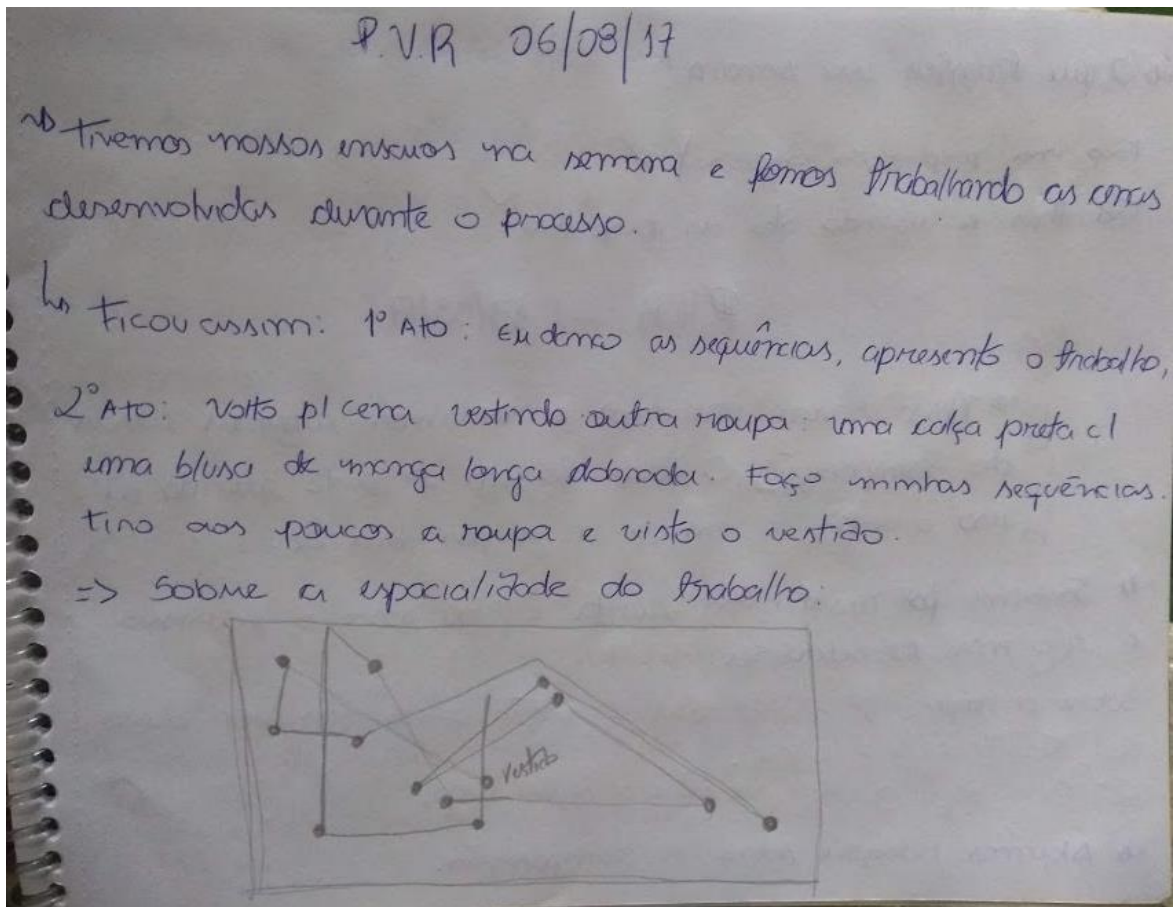 P.V.R 06/08/17
Tivemos nossos ensaios na semana e fomos trabalhando as cenas
desenvolvidas durante o processo.
Ficou assim: 1º Ato: Eu danço as sequências, apresento o trabalho,
2º Ato: Volto p/ cena vestindo outra roupa: uma calça preta c/
uma blusa de manga longa dobrada. Faço minhas sequências.
Tiro aos poucos a roupa e visto o vestido.
=> Sobre a espacialidade do trabalho:
vestido